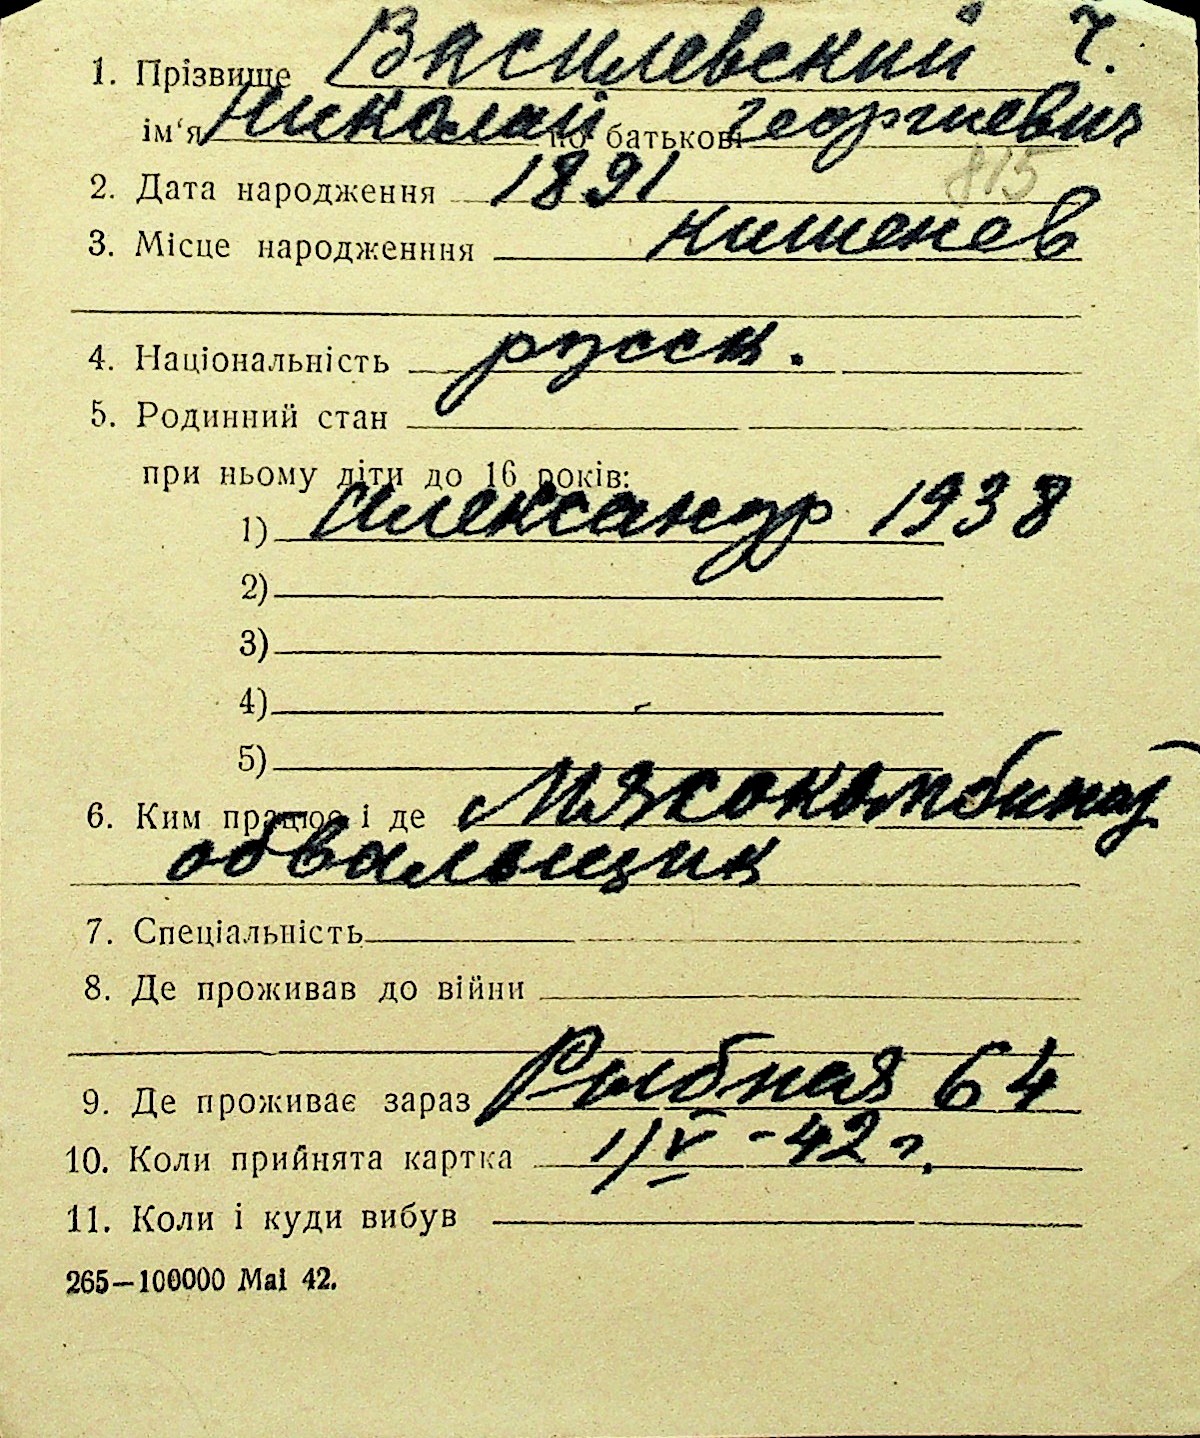 1. Прізвище Василевский Ч.
ім‘я Николай по батькові Георгиевич
815
2. Дата народження 1891
3. Місце народженння Кишенев
4. Національність русск.
5. Родинний стан
при ньому діти до 16 років:
1) Александр 1938
2)
3)
4)
5)
6. Ким працює і де Мясокомбинат
обвальщик
7. Спеціальність
8. Де проживав до війни
9. Де проживає зараз Рыбная 64
10. Коли прийнята картка 1/V - 42 г.
11. Коли і куди вибув
265—100000 Mai 42.